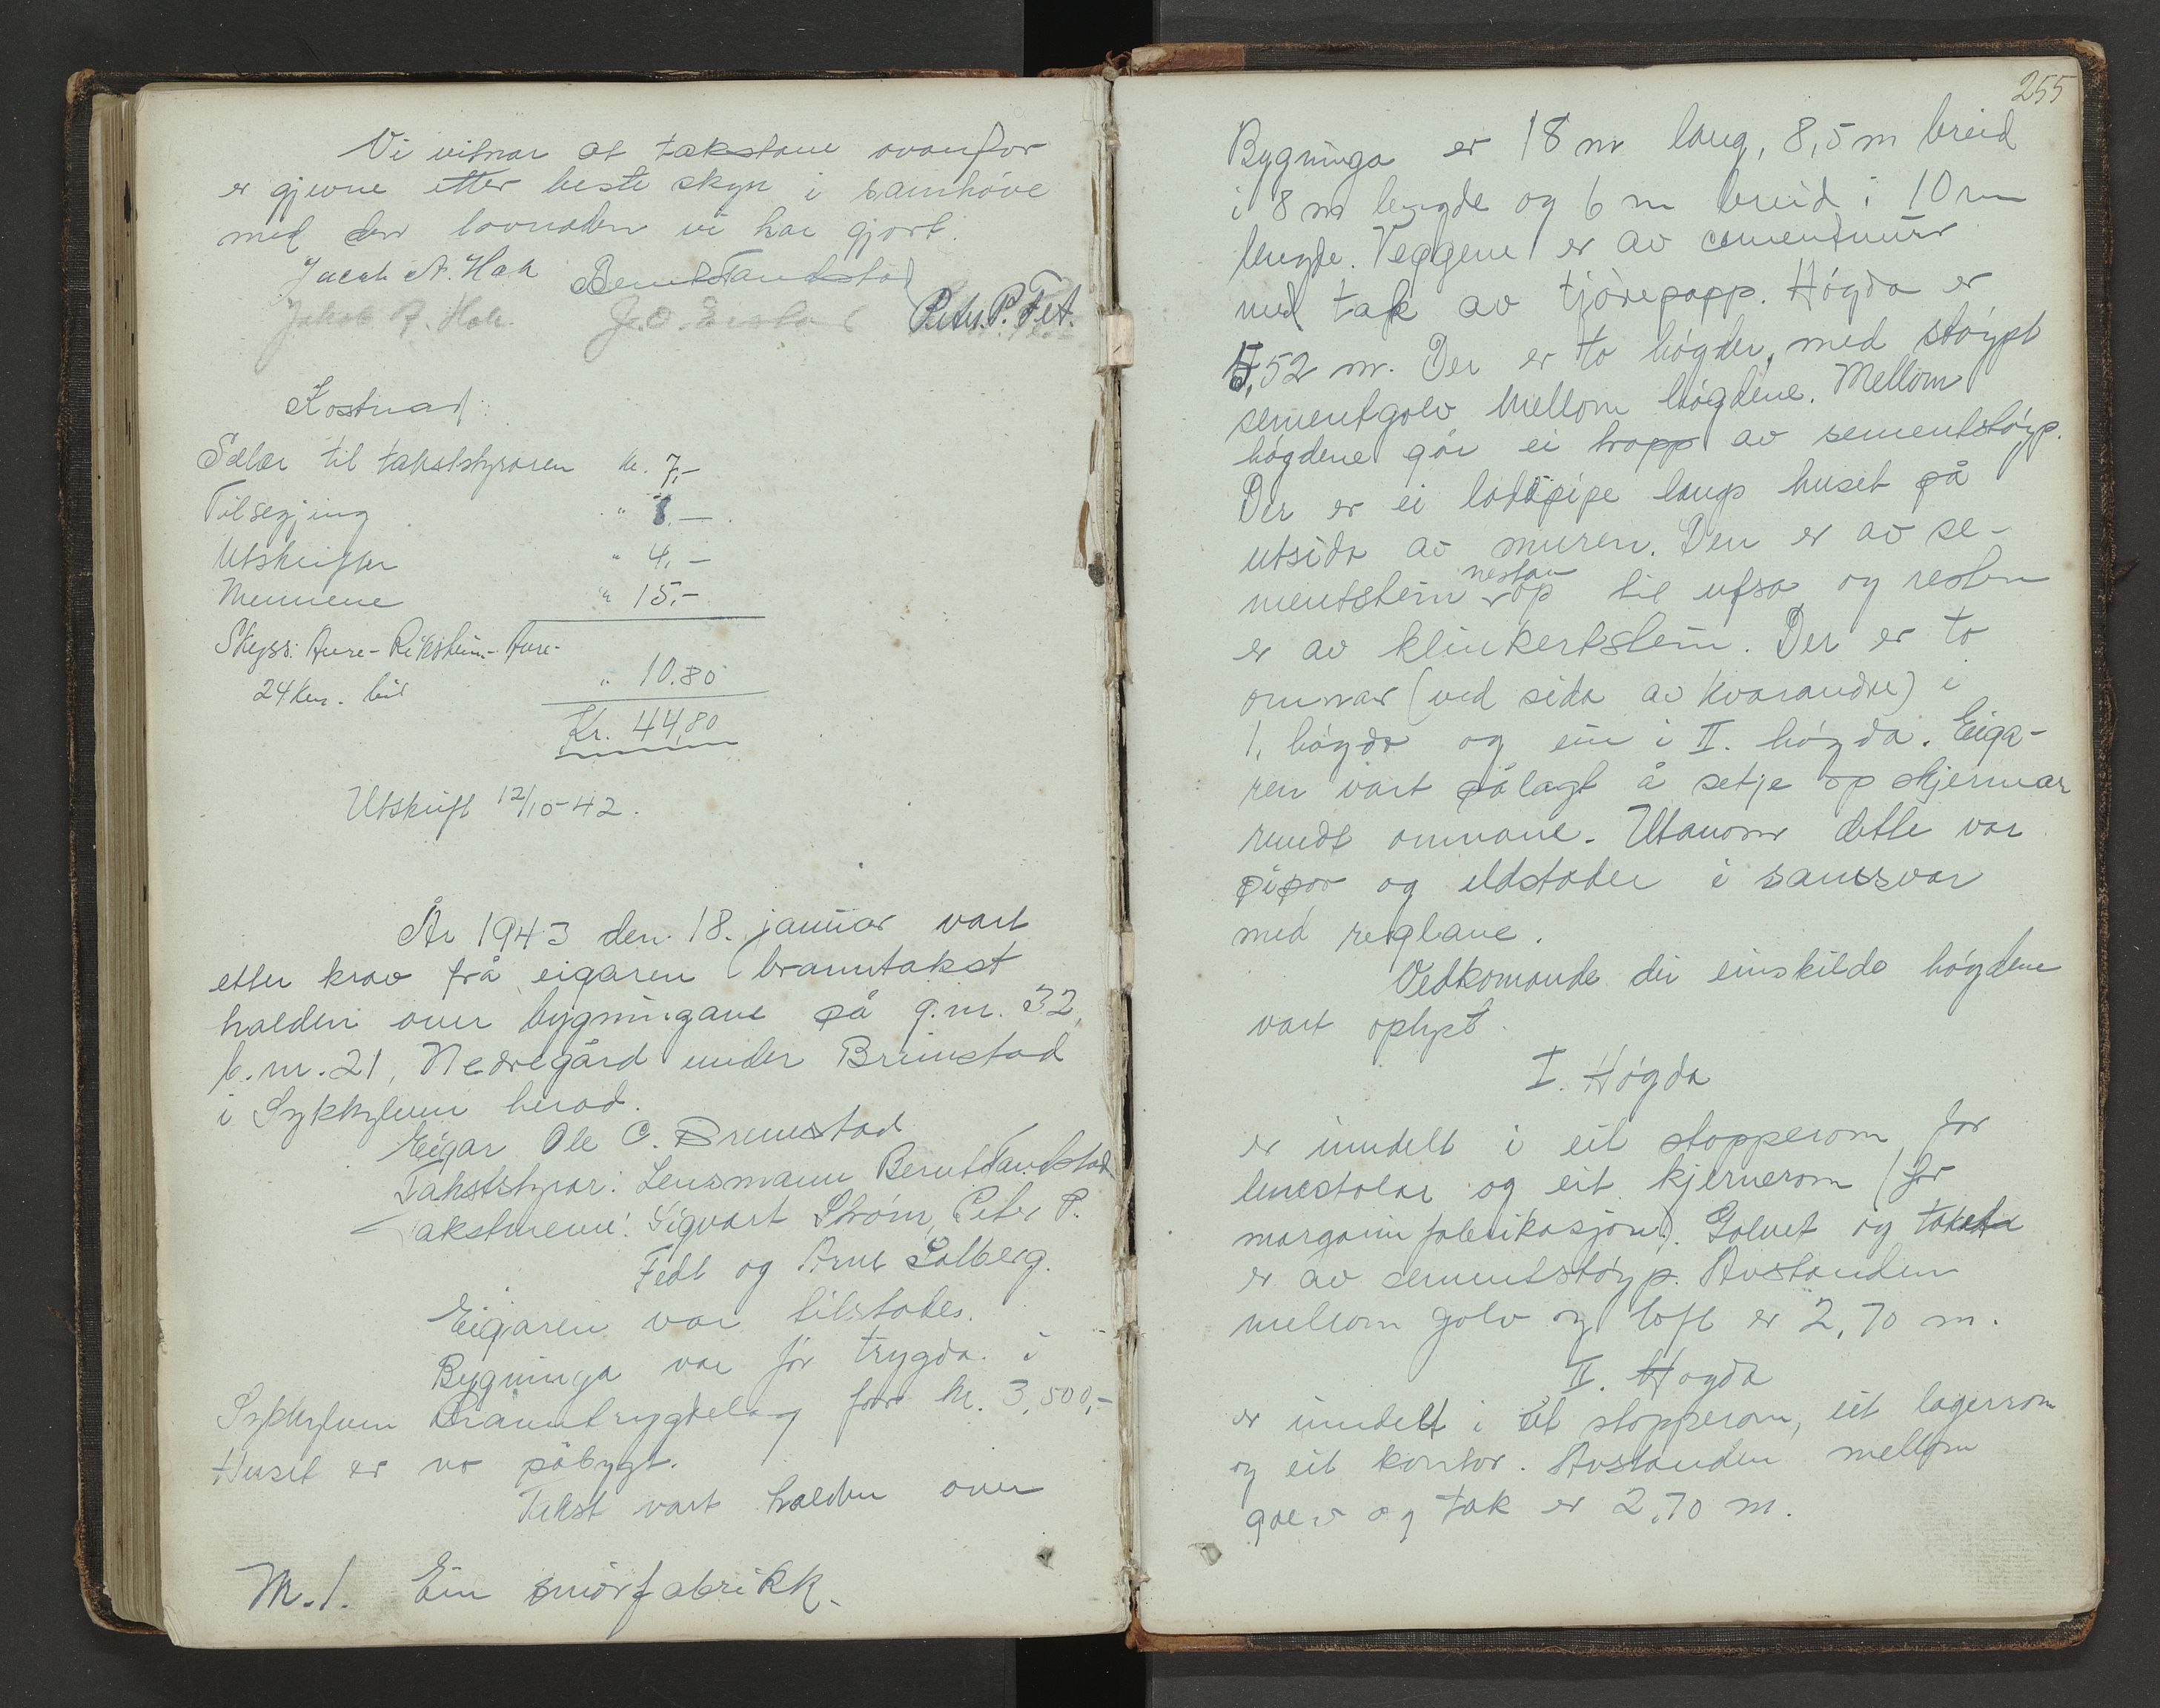 Vi vitnar at takstane ovanfor
er gjevne etter beste skyn i samhøve
med den lovnaden vi har gjort.
Jacob A. Hak Bernt Tandstad
Jakob A. Hak. J. O. Peter P. Fet.
Kostnad:
Salær til takststyraren kr. 7,-
Tilsegjing " 8,-
Utskrifter " 4,-
Mennene " 15,-
Skyss: Aure-Riksheim-Aure-
24 km. bil " 10.80
Kr. 44,80
Utskrift 12/10-42.
År 1943 den 18. januar vart
etter krav frå eigaren branntakst
halden over bygningane på g.nr. 32,
b.nr. 21, Nedregård under Brunstad
i Sykkylven herad.
Eigar Ole C. Brunstad
Takststyrar: Lensmann Bernt Tandstad
Takstmenn: Sigvart Strøm, Peter P.
Fedt og Arne Solberg.
Eigaren var tilstades.
Bygninga var før trygda i
Sykkylven Branntrygdelag for kr. 3,500,-
Huset er no påbygt.
Takst vart halden over
M.1. Ein smørfabrikk.
255
Bygninga er 18 m lang, 8,5 m breid
i 8 m lengde og 6 m breid i 10 m
lengde. Veggene er av cementmur
med tak av tjørepapp. Høgda er
5,52 m. Der er to høgder, med støypt
sementgolv mellom høgdene. Mellom
høgdene går ei tropp av sementstøyp.
Der er ei loddpipe langs huset på
utsida av muren. Den er av se-
mentstein nestan op til ufsa og resten
er av klinkertstein. Der er to
omnar (ved sida av kvarandre) i
1. høgda og ein i II. høgda. Eiga-
ren vart pålagt å setje op skjermar
rundt omnane. Utanom dette var
pipor og eldstader i samsvar
med reglane.
Vedkomande dei einskilde høgdene
vart oplyst.
I. Høgda
er inndelt i eit stopperom for
lenestolar og eit kjernerom (for
margarinfabrikasjon). Golvet og taket
er av sementstøyp. Avstanden
mellom golv og loft er 2,70 m.
II. Høgda
er inndelt i eit stopperom, eit lagerrom
og eit kontor. Avstanden mellom
golv og tak er 2,70 m.